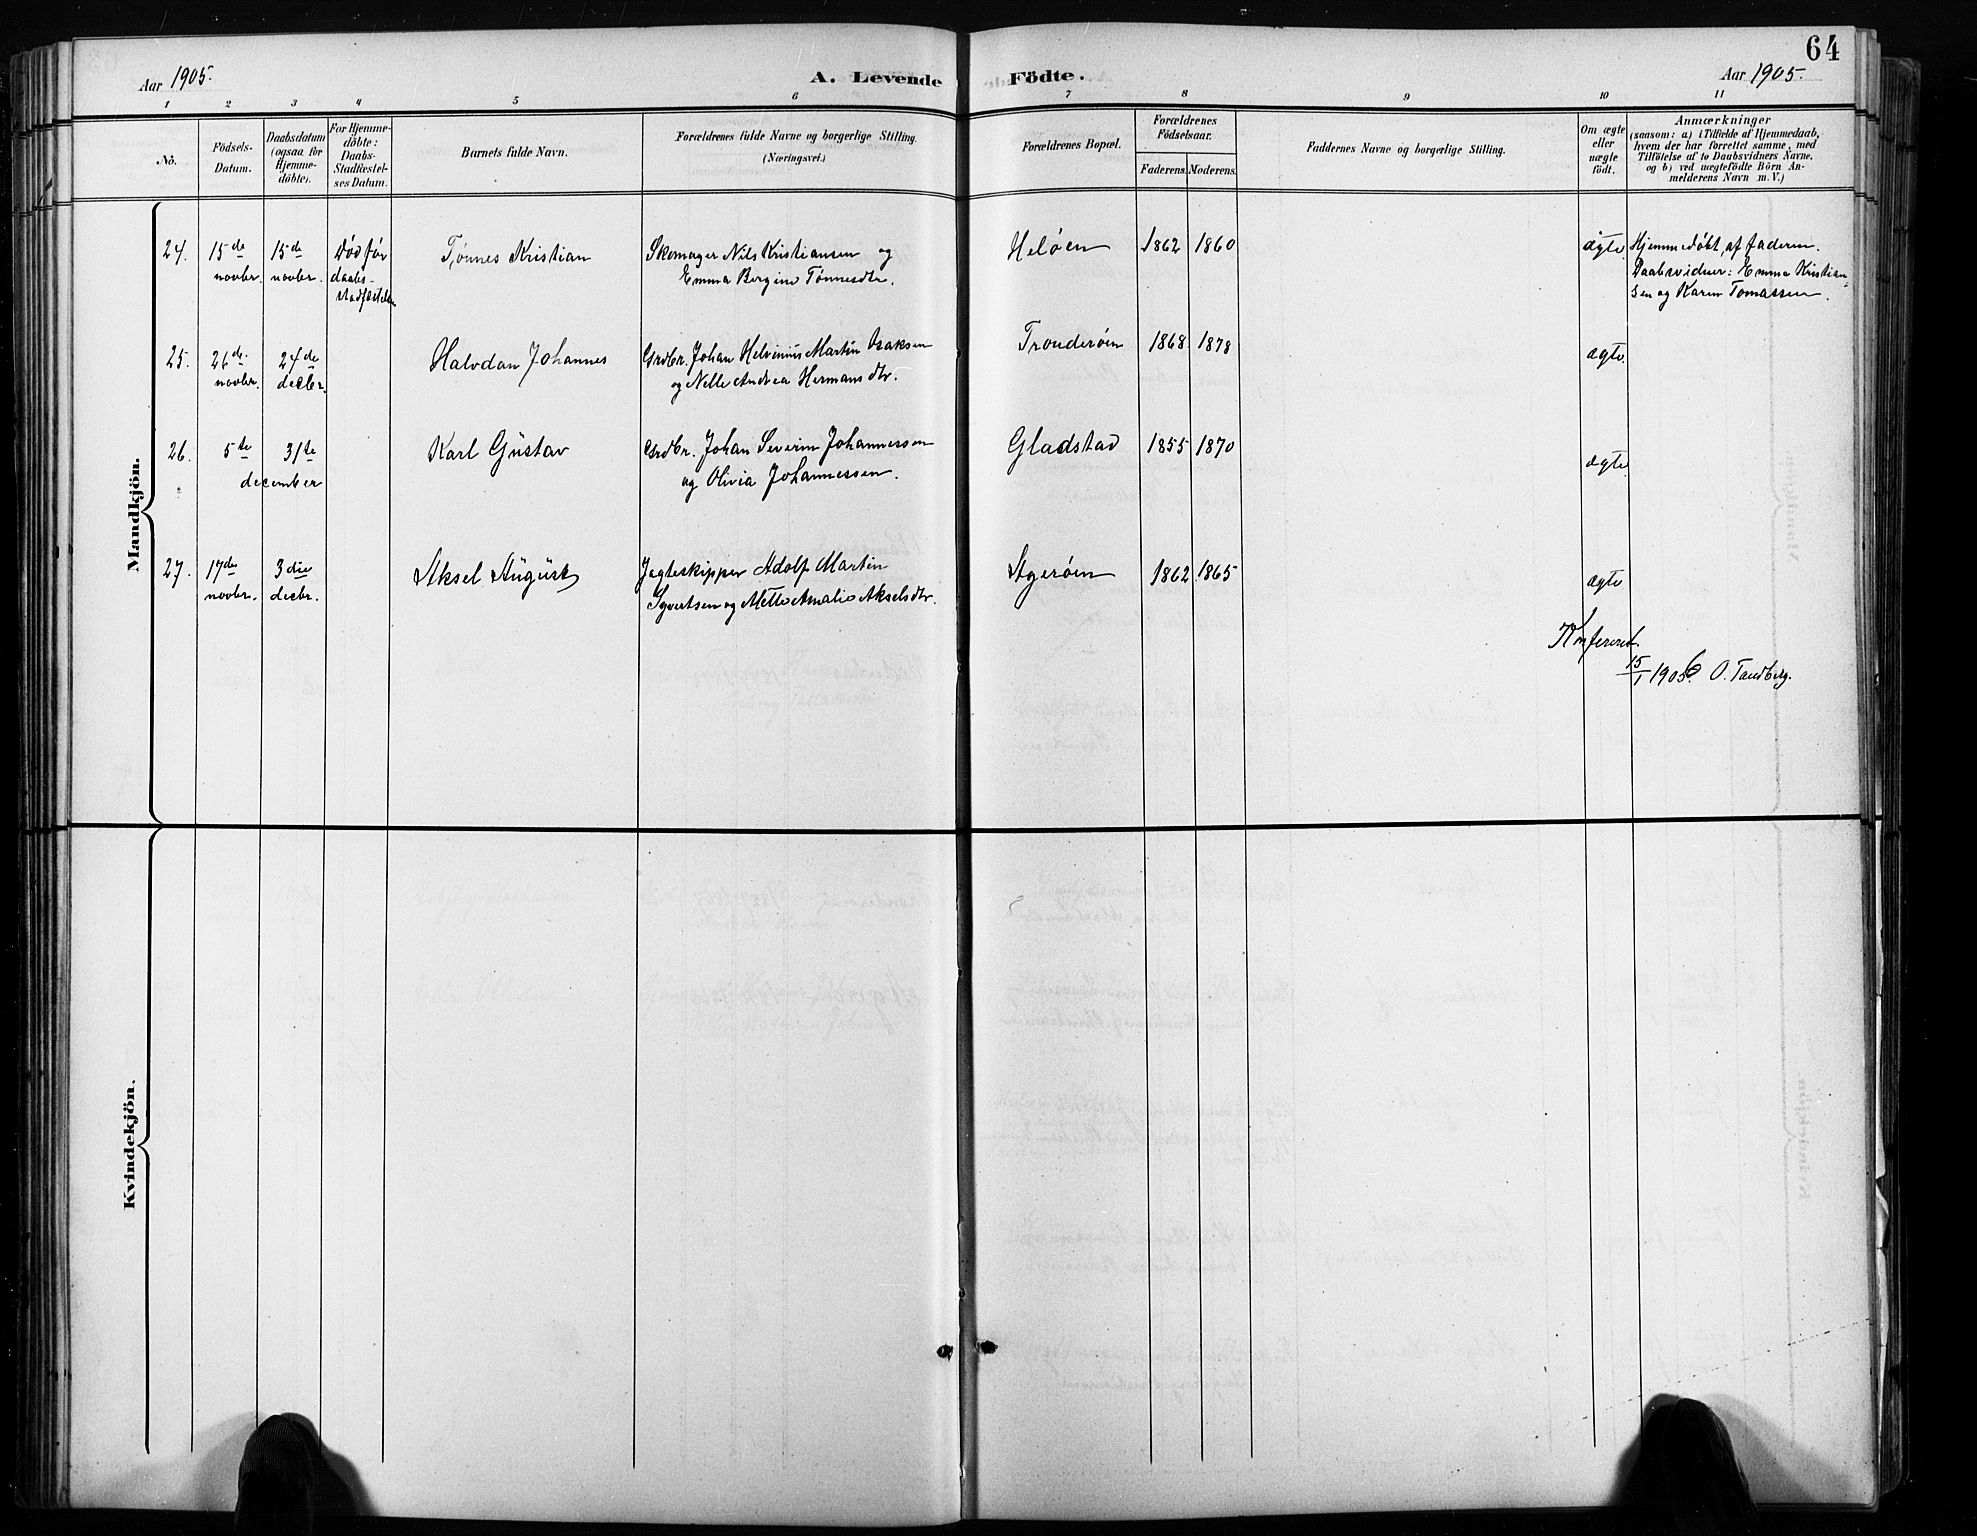 64
Aar 1905.
A. Levende Födte.
Aar 1905.
1 2 3 4 5 6 7 8 9 10 11
No.
Födsels-
Datum.
Daabsdatum
(ogsaa for
Hjemme-
döbte).
For Hjemme-
döbte:
Daabs-
Stadfæstel-
ses Datum.
Barnets fulde Navn.
Forældrenes fulde Navne og borgerlige Stilling.
(Næringsvei.)
Forældrenes Bopæl.
Forældrenes
Födselsaar.
Faderens. Moderens.
Faddernes Navne og borgerlige Stilling.
Om ægte
eller
uægte
födt.
Anmærkninger
(saasom: a) i Tilfælde af Hjemmedaab,
hvem der har forrettet samme, med
Tilföielse af to Daabsvidners Navne,
og b) ved uægtefödte Börn An-
melderens Navn m. V.)
Mandkjön.
24. 15de novbr. 15de novbr. Død før
daabs-
stadfæstelsen
Tønnes Kristian
Skomager Nils Kristiansen og
Emma Bergine Tønnesdtr.
Heløen 1862 1860
ægte
Hjemmedøbt af faderen.
Daabsvidner: Emma Kristian
sen og Karen Tomassen.
25. 26de novbr. 24de decbr.
Halvdan Johannes
Grdbr. Johan Helvinius Martin Isaksen
og Nelle Andrea Hermansdtr.
Tronderøen 1868 1878
ægte
26. 5te 31te
december
Karl Gustav
Grdbr. Johan Severin Johannessen
og Olivia Johannessen.
Gladstad 1855 1870
ægte
27. 17de novbr. 3die decbr.
Aksel August
Jagteskipper Adolf Martin
Syvertsen og Mette Amalie Akselsdtr.
Ygerøen 1862 1865
ægte
Konfereret.
15/1 1906. O. Tandberg.
Kvindekjön.